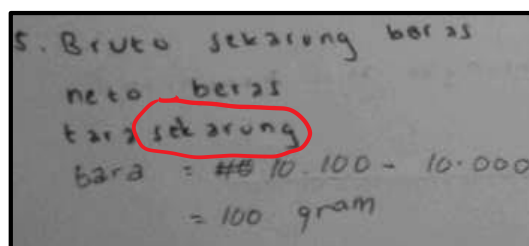 5. Bruto sekarung beras
neto beras
tara sekarung
bara = 10.100 - 10.000
= 100 gram